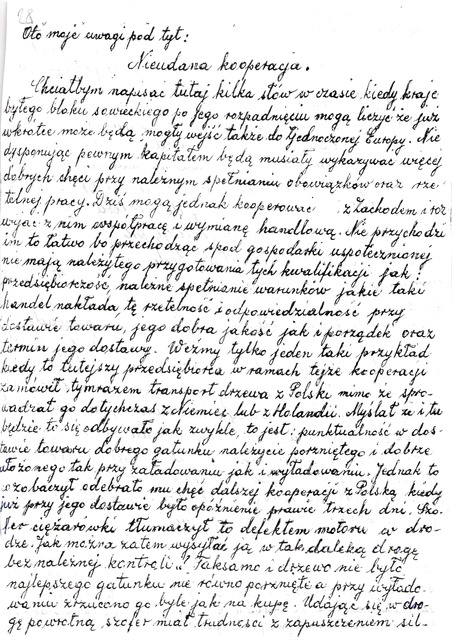 28
Oto moje uwagi pod tyt:
Nieudana kooperacja.
Chciałbym napisać tutaj kilka słów w czasie kiedy kraje
byłego bloku sowieckiego po jego rozpadnięciu mogą liczyć że już
wkrótce może będą mogły wejść także do Zjednoczonej Europy. Nie
dysponując pewnym kapitałem będą musiały wykazywać więcej
dobrych chęci przy należnym spełnianiu obowiązków oraz rze-
telnej pracy. Dziś mogą jednak kooperować z Zachodem i roz
wijać z nim współpracę i wymianę handlową. Nie przychodzi
im to łatwo bo przechodząc spod gospodarki uspołecznionej
nie mają należytego przygotowania tych kwalifikacji jak:
przedsiębiorczość, należne spełnianie warunków jakie taki
handel nakłada, tę rzetelność i odpowiedzialność przy
dostawie towaru, jego dobra jakość jak i porządek oraz
termin jego dostawy. Weźmy tylko jeden taki przykład
kiedy to tutejszy przedsiębiorca w ramach tejże kooperacji
zamówił tymrazem transport drzewa z Polski mimo że spro-
wadzał go dotychczas z Niemiec lub z Holandii. Myślał że i tu
będzie to się odbywało jak zwykle, to jest: punktualność w dos-
tawie towaru dobrego gatunku należycie porzniętego i dobrze
ułożonego tak przy załadowaniu jak i wyładowaniu. Jednak to
co zobaczył odebrało mu chęć dalszej kooperacji z Polską, kiedy
już przy jego dostawie było opóźnienie prawie trzech dni. Szo-
fer ciężarówki tłumaczył to defektem motoru w dro-
dze. Jak można zatem wysyłać ją w tak daleką drogę
bez należnej kontroli? Taksamo i drzewo nie było
najlepszego gatunku nie równo porznięte a przy wyłado-
waniu zrzucono go byle jak na kupę. Udając się w dro-
gę powrotną, szofer miał trudności z zapuszczeniem sil-